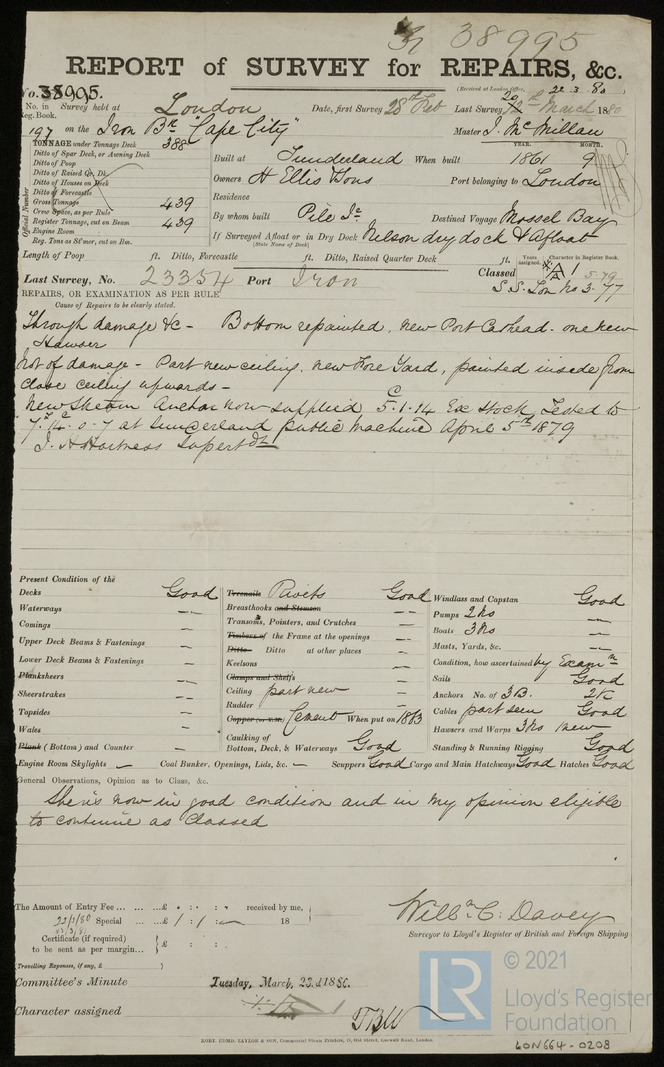 38995
REPORT of SURVEY for REPAIRS, &c.
(Received at London Office, 22.3.80)
No. 38995.
No. in Reg. Book. Survey held at London Date, first Survey 28th Feb Last Survey 20th March 1880
197 on the Iron Bn "Cape City" Master J. McMillan
TONNAGE under Tonnage Deck 388
Ditto of Spar Deck, or Awning Deck
Ditto of Poop
Ditto of Raised Qr. Dk
Ditto of Houses on Deck
Ditto of Forecastle
Gross Tonnage 439
Crew Space, as per Rule
Register Tonnage, cut on Beam 439
Engine Room
Reg. Tons as St'mer, cut on Bm.
Official Number
YEAR. MONTH.
Built at Sunderland When built 1861 9
Owners H Ellis & Sons Port belonging to London
Residence
By whom built Pile Jr Destined Voyage Mossel Bay
If Surveyed Afloat or in Dry Dock Nelson dry dock & Afloat
(State Name of Dock)
Length of Poop ft. Ditto, Forecastle ft. Ditto, Raised Quarter Deck ft.
Years assigned. Character in Register Book.
Last Survey, No. 23354 Port Iron Classed A1 5.79
S.S. Lon No 3-77
REPAIRS, OR EXAMINATION AS PER RULE
Cause of Repairs to be clearly stated.
Through damage &c - Bottom repainted, new Port Cathead. one new
Hawser
Not of damage - Part new ceiling, new Fore Yard, painted inside from
close ceiling upwards -
New Stream Anchor now supplied 5.1.14 Ex Stock, Tested to
7.14.0.7 at Sunderland public machine April 5th 1879
J. H Hartness Superdt
Present Condition of the
Decks Good
Waterways "
Comings "
Upper Deck Beams & Fastenings "
Lower Deck Beams & Fastenings "
Planksheers "
Sheerstrakes "
Topsides "
Wales "
Plank (Bottom) and Counter "
Engine Room Skylights —
Treenails Rivets Good
Breasthooks and Stemson "
Transoms, Pointers, and Crutches "
Timbers of the Frame at the openings "
Ditto Ditto at other places "
Keelsons "
Clamps and Shelfs "
Ceiling part new "
Rudder "
Copper (or Y.M.) Cement When put on 1863
Caulking of
Bottom, Deck, & Waterways Good
Coal Bunker. Openings, Lids, &c. — Scuppers Good Cargo and Main Hatchways Good Hatches Good
Windlass and Capstan Good
Pumps 2 No "
Boats 3 No "
Masts, Yards, &c. "
Condition, how ascertained by Examn
Sails Good
Anchors No. of 3B. 2K
Cables part seen Good
Hawsers and Warps 3 No new
Standing & Running Rigging Good
General Observations, Opinion as to Class, &c.
She is now in good condition and in my opinion eligible
to continue as Classed
The Amount of Entry Fee ... ... ...£ : : received by me,
22/3/80 Special ... ...£ 1 : 1 : — 18
Certificate (if required) £ : :
to be sent as per margin...
(Travelling Expenses, if any, £ )
Willm C. Davey
Surveyor to Lloyd's Register of British and Foreign Shipping
Committee's Minute Tuesday, March, 23d 1880.
Character assigned
TBW
ROBT. EDMD. TAYLOR & SON, Commercial Steam Printers, 19, Old Street, Goswell Road, London.
LR © 2021
Lloyd's Register
Foundation
LON664-0208